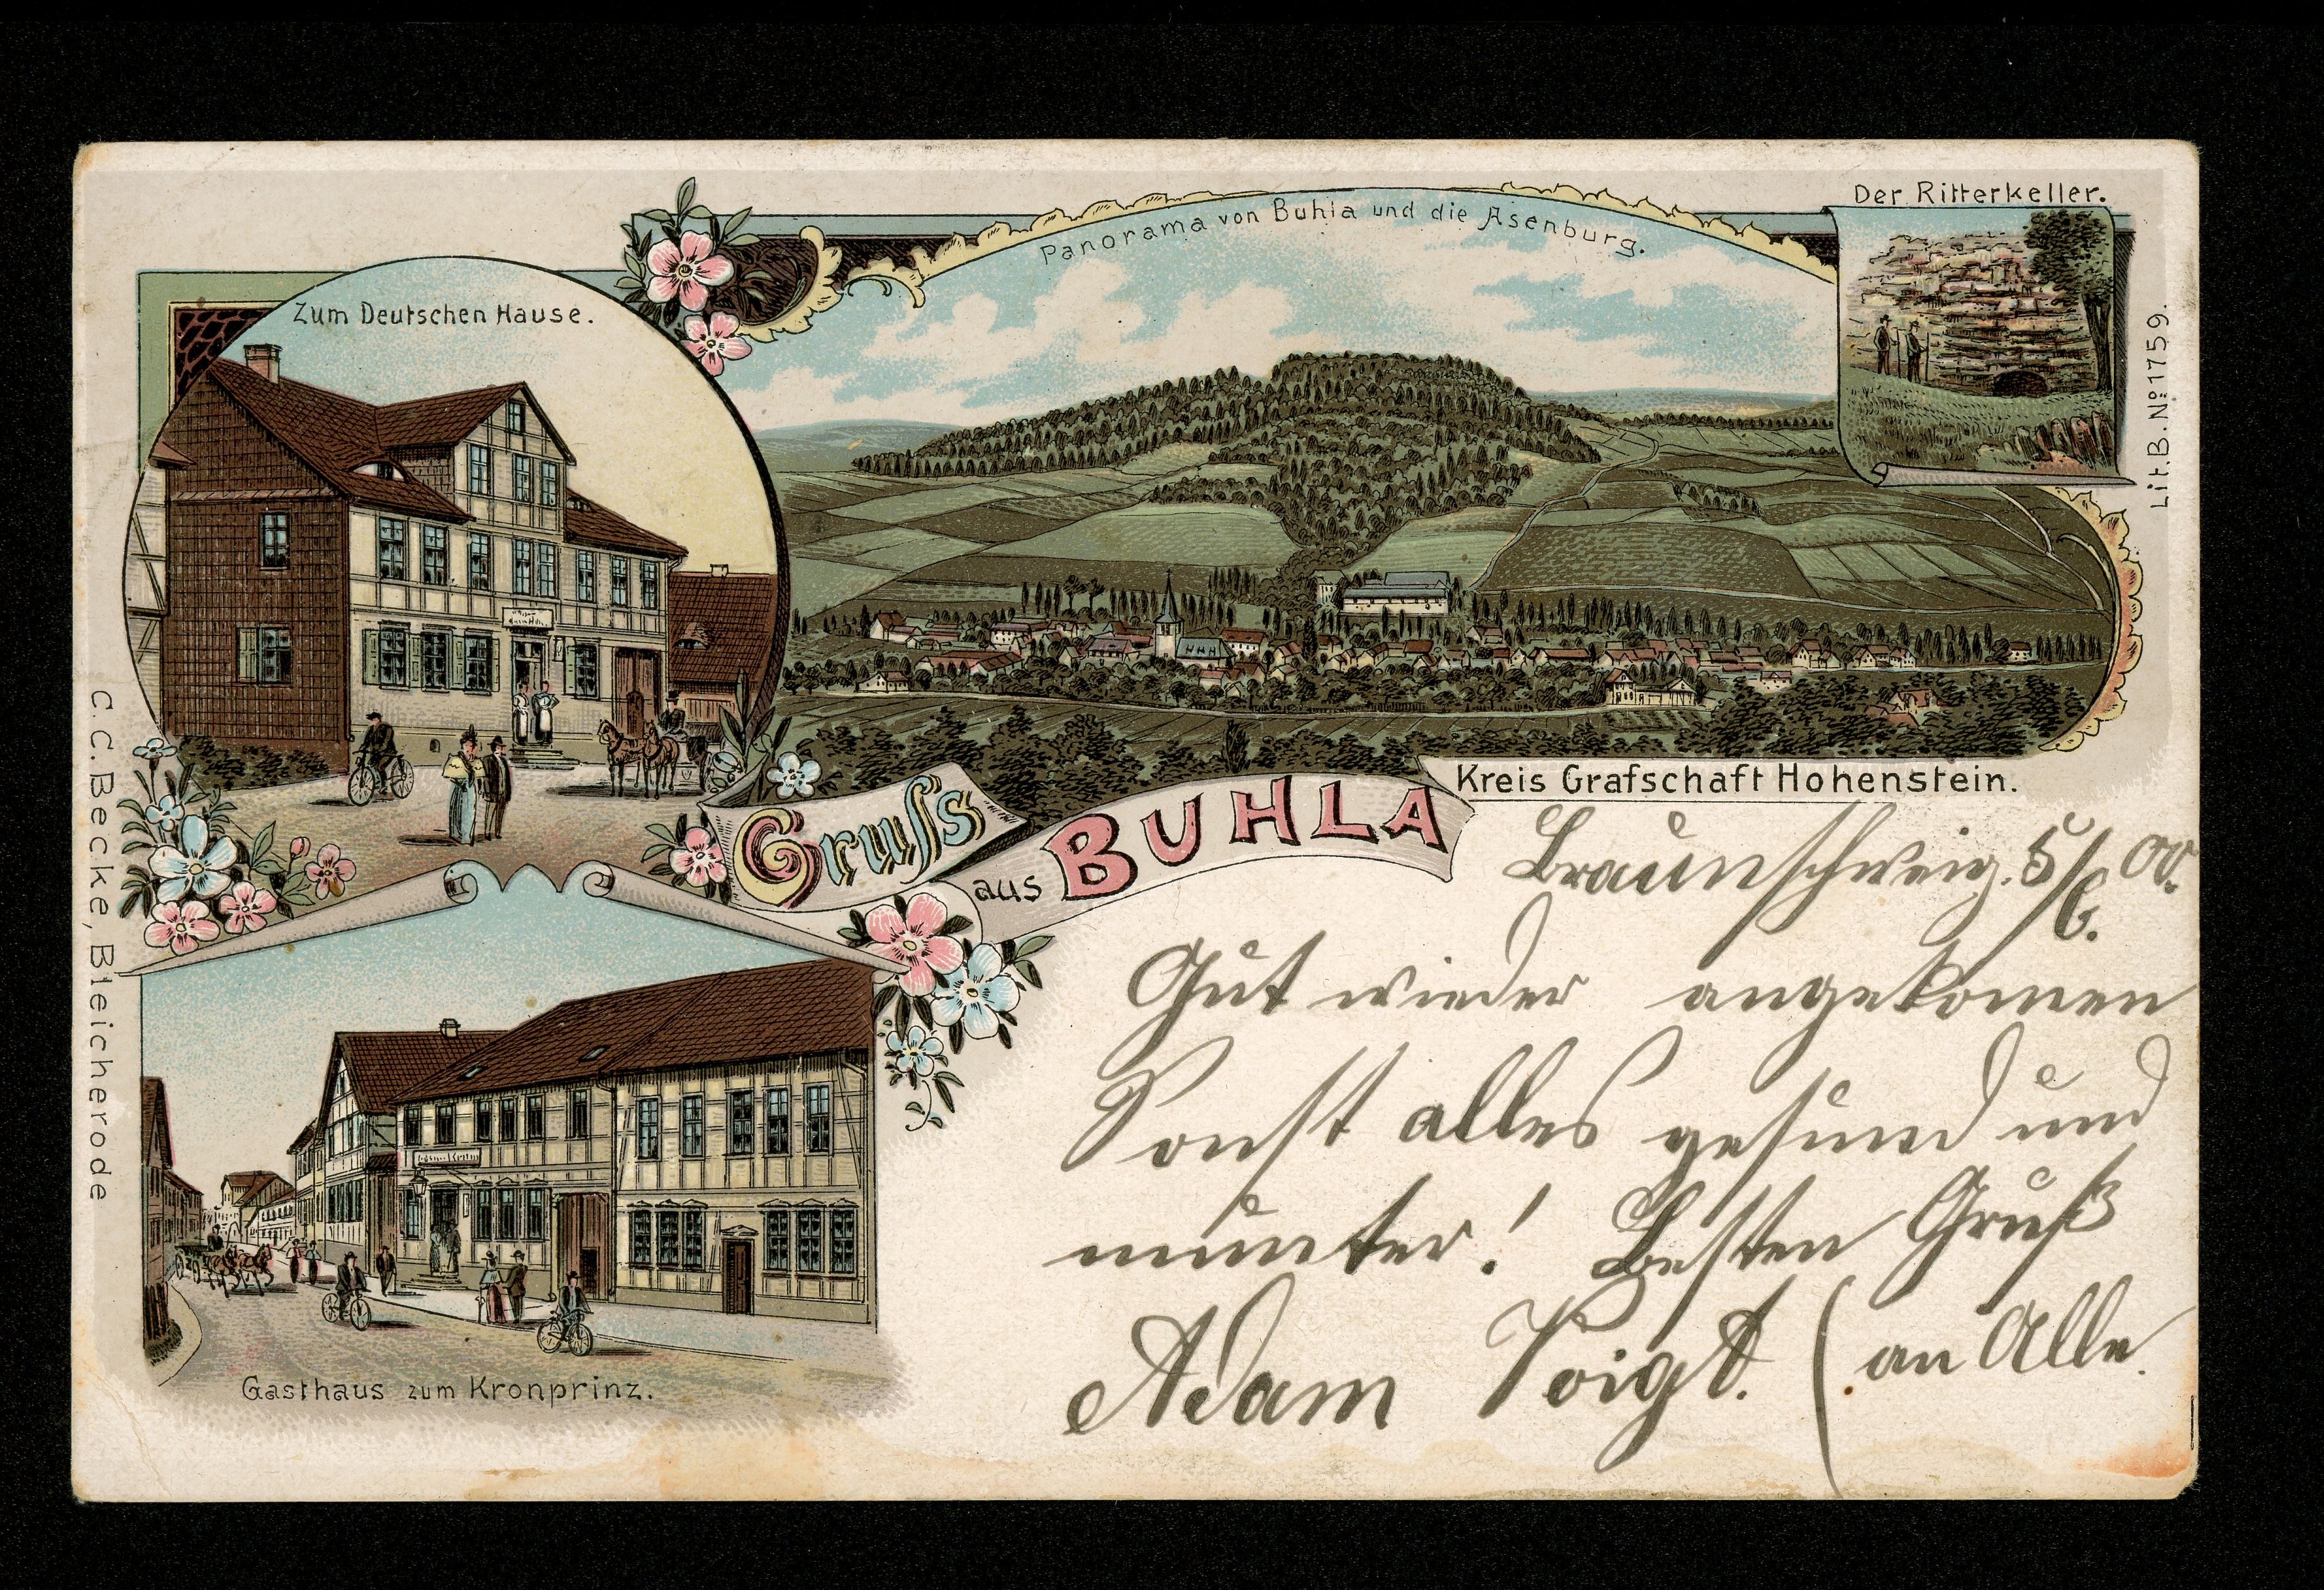 Der Ritterkeller.
Panorama von Buhla und die Asenburg.
Zum Deutschen Hause.
Lit.B.No 1759.
C.C.Becke, Bleicherode
Kreis Grafschaft Hohenstein.
Gruſs
aus BUHLA
Braunschweig. 5/6. 00.
Gut wieder angekomen
Sonst alles gesund und
munter! Besten Gruß
Adam Voigt. (an Alle.
Gasthaus zum Kronprinz.